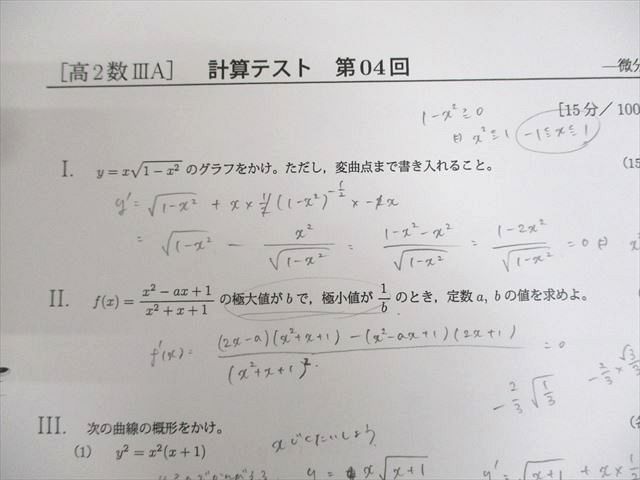 [高2数ⅢA] 計算テスト 第04回 —微分
[15分/100
1-x²≧0
⇔ x²≦1 -1≦x≦1
I. y=x√(1-x²) のグラフをかけ。ただし，変曲点まで書き入れること。 (15
y'= √(1-x²) + x × 1/2 (1-x²)^(-1/2) × -2x
= √(1-x²) - x²/√(1-x²) = (1-x²-x²)/√(1-x²) = (1-2x²)/√(1-x²) = 0 ⇔ x²
II. f(x)=(x²-ax+1)/(x²+x+1) の極大値が b で，極小値が 1/b のとき，定数 a, b の値を求めよ。
f'(x)= ((2x-a)(x²+x+1)-(x²-ax+1)(2x+1))/(x²+x+1)² = 0
-2/3 √(1/3)
III. 次の曲線の概形をかけ。
xじくたいしょう
(1) y²=x²(x+1)
y = x√(x+1) y'= √(x+1) +